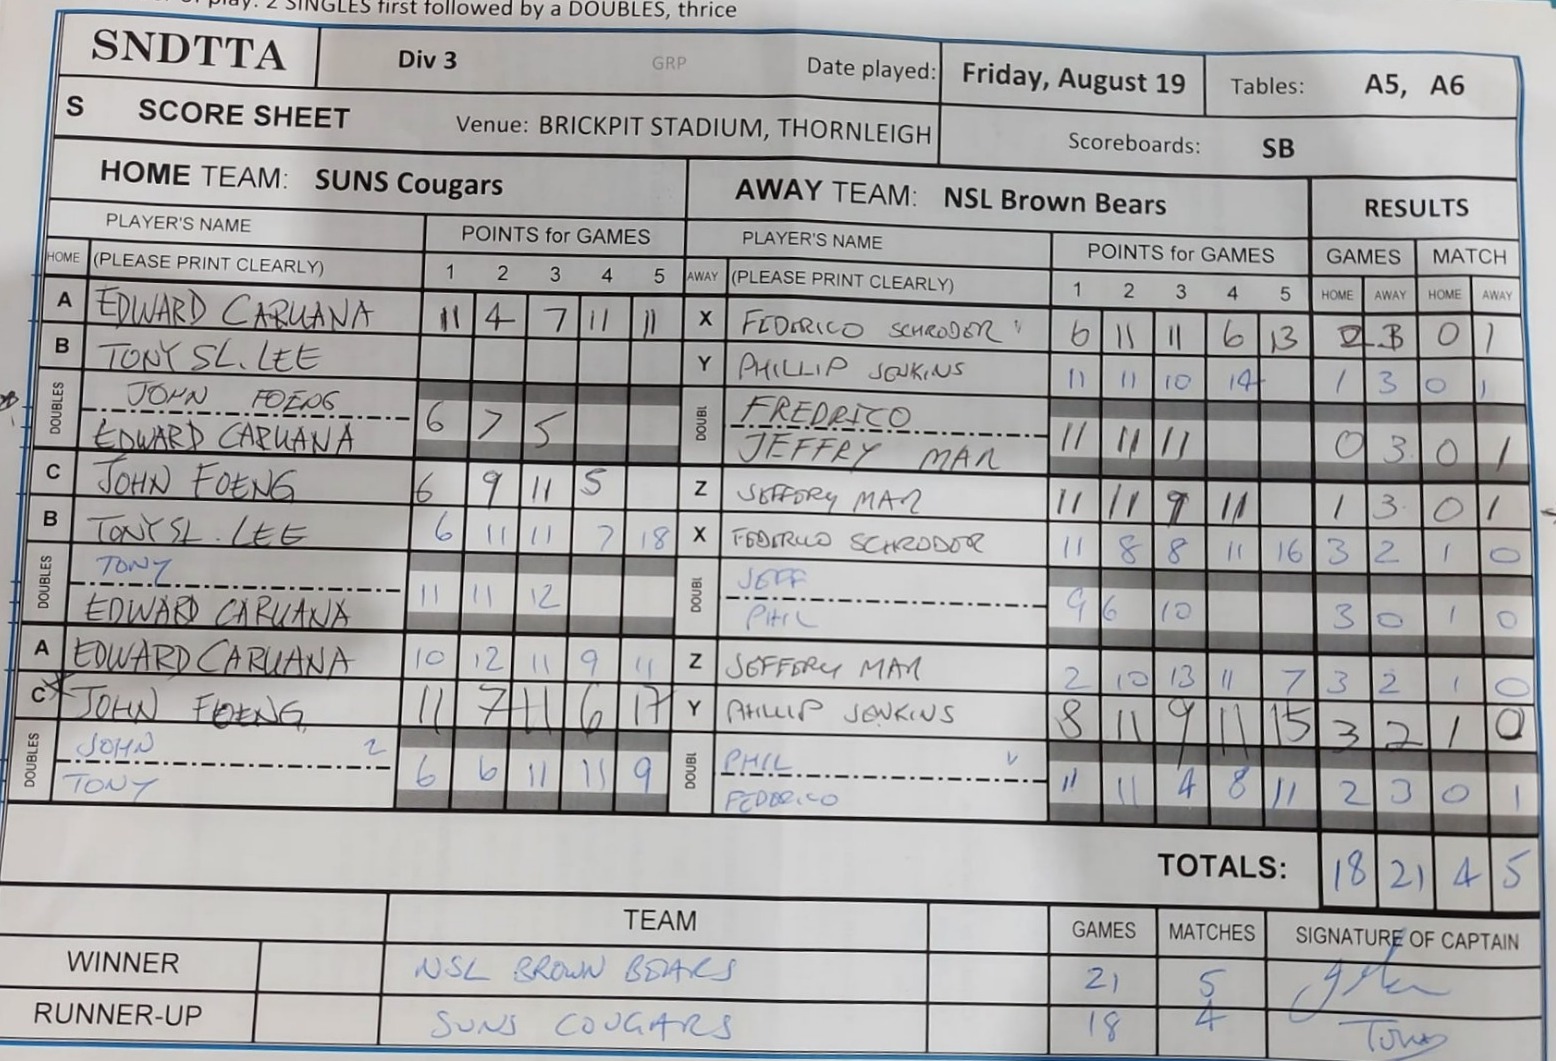 play: 2 SINGLES first followed by a DOUBLES, thrice
SNDTTA Div 3 GRP Date played: Friday, August 19 Tables: A5, A6
S SCORE SHEET Venue: BRICKPIT STADIUM, THORNLEIGH Scoreboards: SB
HOME TEAM: SUNS Cougars AWAY TEAM: NSL Brown Bears RESULTS
PLAYER'S NAME POINTS for GAMES PLAYER'S NAME POINTS for GAMES GAMES MATCH
HOME (PLEASE PRINT CLEARLY) 1 2 3 4 5 AWAY (PLEASE PRINT CLEARLY) 1 2 3 4 5 HOME AWAY HOME AWAY
A EDWARD CARUANA 11 4 7 11 11 X FEDERICO SCHRODER 6 11 11 6 13 2 3 0 1
B TONY S.L. LEE Y PHILLIP JENKINS 11 11 10 14 1 3 0 1
DOUBLES JOHN FOENG DOUBL FREDRICO
EDWARD CARUANA 6 7 5 JEFFRY MAR 11 11 11 0 3 0 1
C JOHN FOENG 6 9 11 5 Z JEFFERY MAR 11 11 9 11 1 3 0 1
B TONY S.L. LEE 6 11 11 7 18 X FEDERICO SCHRODER 11 8 8 11 16 3 2 1 0
DOUBLES TONY DOUBL JEFF
EDWARD CARUANA 11 11 12 PHIL 9 6 10 3 0 1 0
A EDWARD CARUANA 10 12 11 9 11 Z JEFFERY MAR 2 10 13 11 7 3 2 1 0
C JOHN FOENG 11 7 11 6 17 Y PHILLIP JENKINS 8 11 9 11 15 3 2 1 0
DOUBLES JOHN 2 DOUBL PHIL
TONY 6 6 11 11 9 FEDERICO 11 11 4 8 11 2 3 0 1
TOTALS: 18 21 4 5
TEAM GAMES MATCHES SIGNATURE OF CAPTAIN
WINNER NSL BROWN BEARS 21 5
RUNNER-UP SUNS COUGARS 18 4 Tony